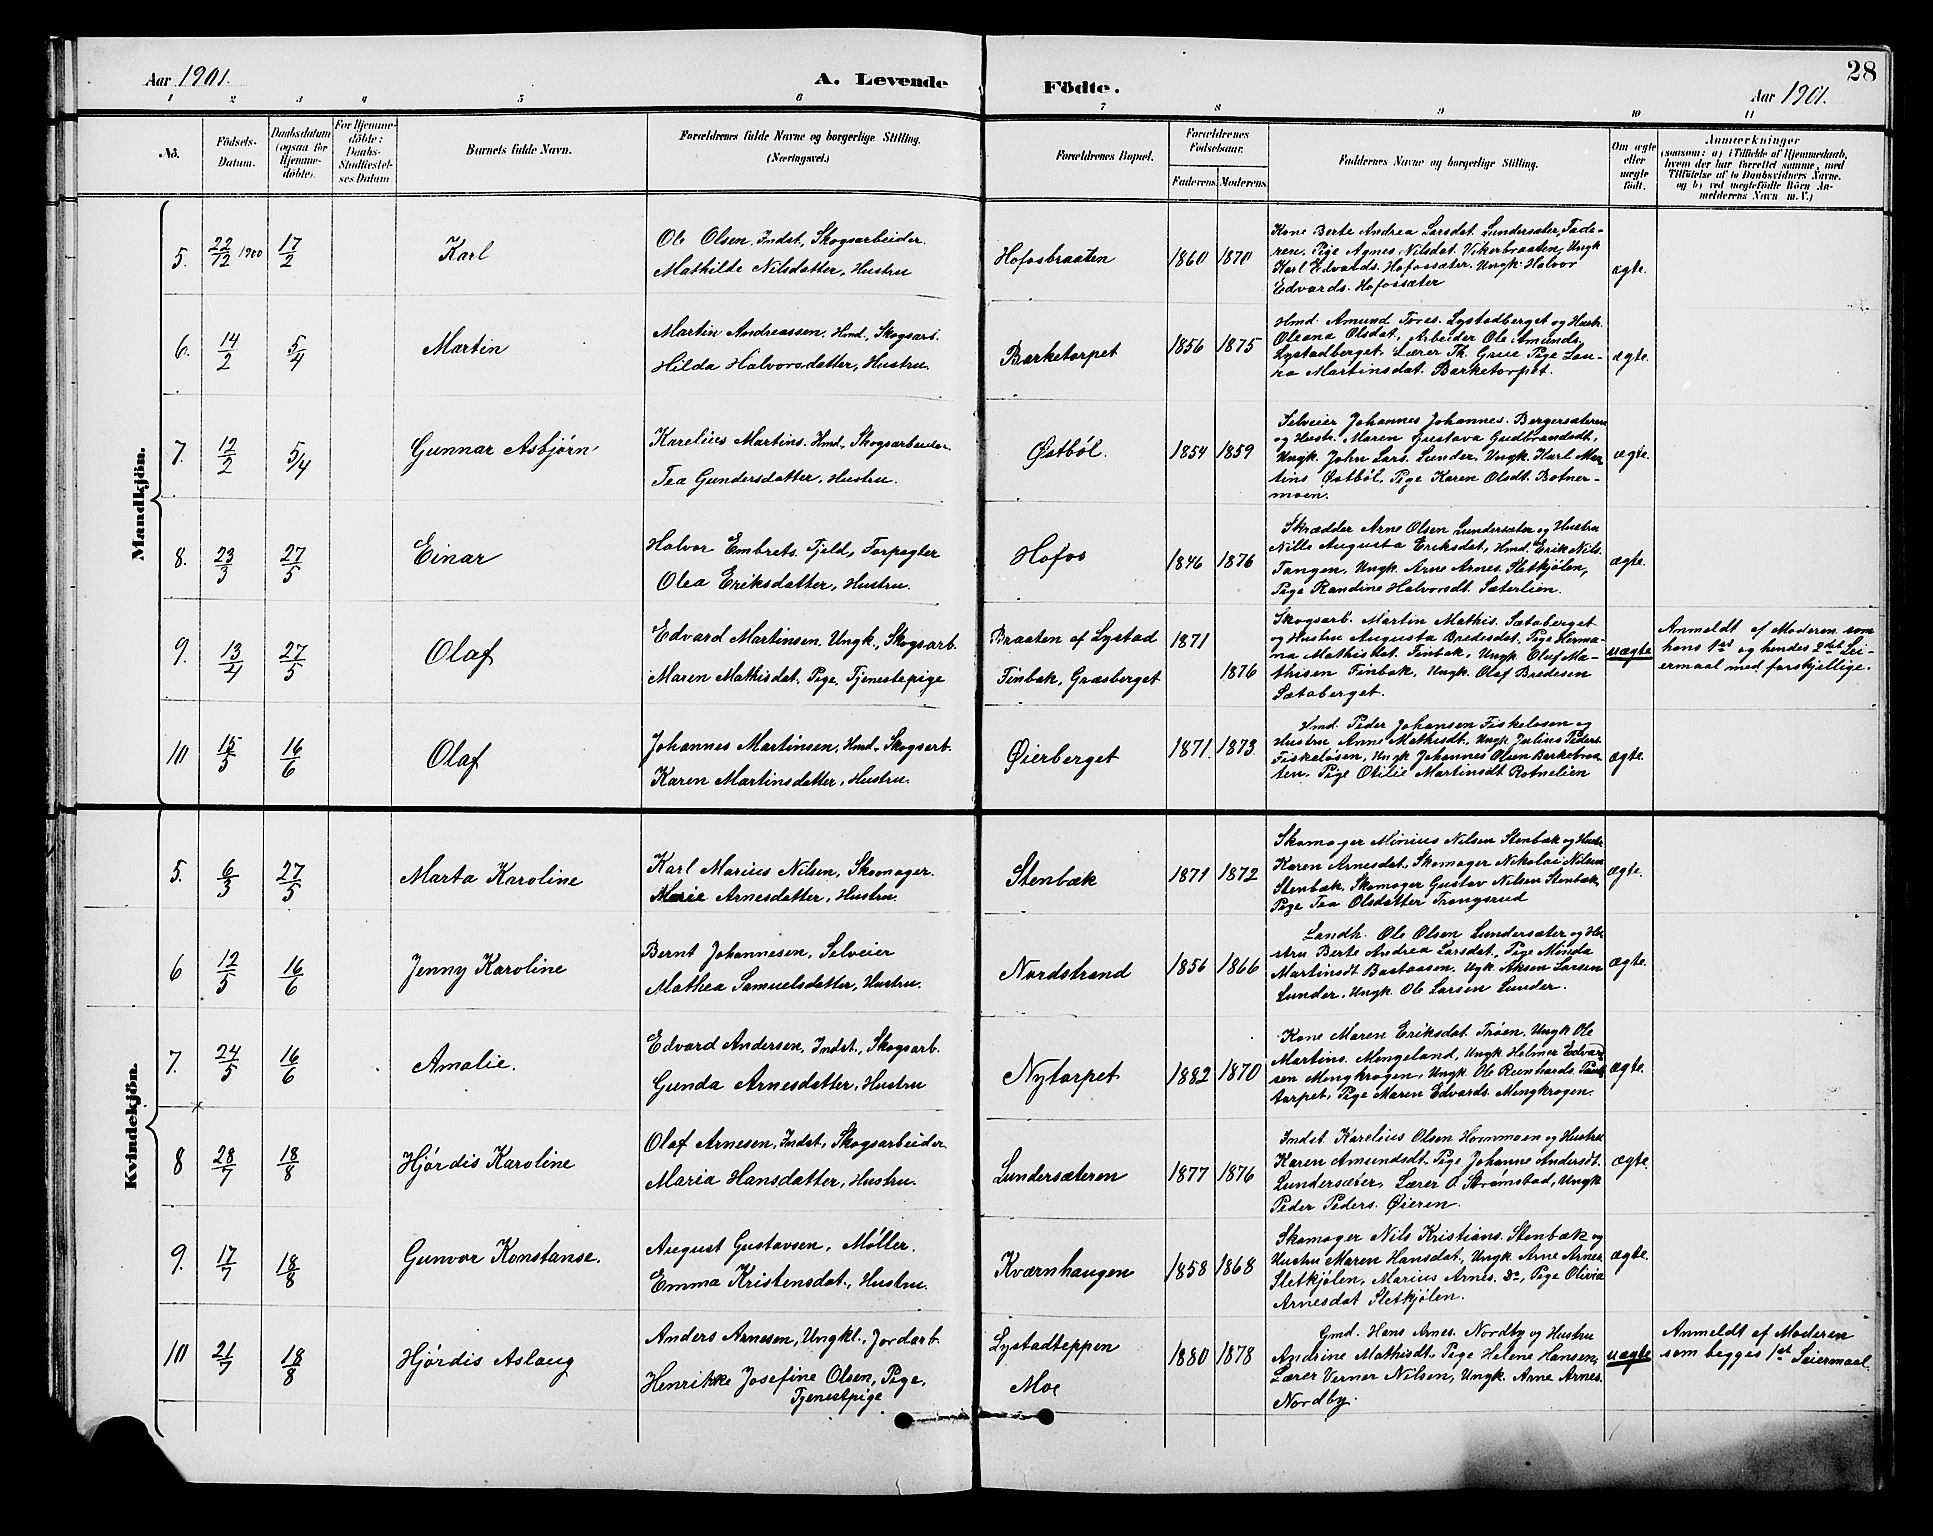 Aar 1901.
A. Levende Födte.
28
Aar 1901.
1 2 3 4 5 6 7 8 9 10 11
No.
Födsels-
Datum.
Daabsdatum
(ogsaa for
Hjemme-
döbte).
For Hjemme-
döbte:
Daabs-
Stadfæstel-
ses Datum
Barnets fulde Navn.
Forældrenes fulde Navne og borgerlige Stilling.
(Næringsvei.)
Forældrenes Bopæl.
Forældrenes
Födselsaar.
Faderens. Moderens.
Faddernes Navne og borgerlige Stilling.
Om ægte
eller
uægte
födt.
Anmærkninger
(saasom: a) i Tilfælde af Hjemmedaab,
hvem der har forrettet samme, med
Tilföielse af to Daabsvidners Navne.
og b) ved uægtefödte Börn An-
melderens Navn m. V.)
Mandkjön.
5. 22/12 1900 17/2 Karl
Ole Olsen, Indst., Skogsarbeider.
Mathilde Nilsdatter, Hustru
Hofosbraaten 1860 1870
Kone Berte Andrea Larsdat. Lundersæter, Fade-
ren, Pige Agnes Nilsdat. Vikerbraaten, Ungk
Karl Edvards. Hofossæter. Ungk. Halvor
Edvards. Hofossæter
ægte.
6. 14/2 5/4 Martin
Martin Andreassen, Hmd., Skogsarb.
Hilda Halvorsdatter, Hustru.
Barketorpet 1856 1875
Hmd. Amund Tores. Lystadberget og Hustr.
Oleana Olsdat., Arbeider Ole Amunds.
Lystadberget, Lærer Th. Grue Pige Lau-
ra Martinsdat. Barketorpet.
ægte.
7. 12/2 5/4 Gunnar Asbjørn
Karelius Martins. Hmd., Skogsarbeider
Tea Gundersdatter, Hustru.
Østböl. 1854 1859
Selveier Johannes Johannes. Bergersæteren
og Hustr. Maren Gustava Gudbrandsdt,
Ungk. John Lars. Lunder, Ungk. Karl Mar-
tins Østböl, Pige Karen Olsdt. Botner-
moen.
ægte.
8. 23/3 27/5 Einar
Halvor Embrets. Fjeld, Forpagter
Olea Eriksdatter, Hustru.
Hofos 1846 1876
Skrædder Arne Olsen Lundersæter og Hustru
Nille Augusta Eriksdat, Hmd. Erik Nils.
Tangen, Ungk. Arne Arnes. Sletkjølen,
Pige Randine Halvorsdt. Sæterlien.
ægte.
9. 13/4 27/5 Olaf
Edvard Martinsen, Ungk., Skogsarb.
Maren Mathisdat. Pige, Tjenestepige
Braaten af Lystad 1871
Finbak, Græsberget 1876
Skogsarb. Martin Mathis. Sætaberget
og Hustru Augusta Bredesdat. Pige Herma-
na Mathisdat. Finbak, Ungk. Oluf Ma-
thisen Finbak, Ungk. Olaf Bredesen
Sætaberget.
uægte
Anmeldt af Moderen som
hans 1st og hendes 2det Lei-
ermaal med forskjellige.
10 15/5 16/6 Olaf
Johannes Martinsen, Hmd., Skogsarb.
Karen Martinsdatter, Hustru.
Øierberget 1871. 1873.
Hmd. Peder Johansen Fiskeløsen og
Hustru Anne Mathisdt., Ungk Julius Peders.
Fiskeløsen, Ungk Johannes Olsen Barkebraa-
ten. Pige Otilie Martinsdt Rotnelien
ægte.
Kvindekjön.
5. 6/3 27/5 Marta Karoline
Karl Marius Nilsen, Skomager.
Marie Arnesdatter, Hustru.
Stenbæk 1871 1872
Skomager Minius Nilsen Stenbæk og Hustr.
Karen Arnesdat. Skomager Nikolai Nilsen
Stenbæk, Skomager Gustav Nilsen Stenbæk,
Pige Tea Olsdatter Trangsrud
ægte.
6 12/5 16/6 Jenny Karoline
Bernt Johannesen, Selveier
Mathea Samuelsdatter, Hustru.
Nordstrand 1856 1866
Landh. Ole Olsen Lundersæter og Hu-
stru Berte Andrea Larsdat., Pige Minda
Martinsdt Bastaasen, Ugk. Aksen Larsen
Lunder, Ungk. Ole Larsen Lunder.
ægte.
7. 24/5 16/6 Amalie.
Edvard Andersen, Indst., Skogsarb.
Gunda Arnesdatter, Hustru
Nytorpet 1882 1870
Kone Maren Eriksdat. Trøen, Ungk Ole
Martins. Mengeland, Ungk. Helmer Edvar-
sen Mengkrogen, Ungk. Ole Reinhards.
torpet, Pige Maren Edvards. Mengkrogen.
ægte.
8 28/7 18/8 Hjørdis Karoline
Olaf Arnesen, Indst., Skogsarbeider
Maria Hansdatter, Hustru.
Lundersæteren 1877 1876
Indst. Karelius Olsen Hornmoen og Hustru
Karen Amundsdt. Pige Johanne Andersdt.
Lundersæter, Lærer O. Strømstad, Ungk
Peder Peders. Øieren.
ægte.
9. 17/7 18/8 Gunvor Konstanse.
August Gustavsen, Møller.
Emma Kristensdat., Hustru.
Kværnhaugen 1858 1868
Skomager Nils Kristians. Stenbæk og
Hustru Maren Hansdat., Ungk. Arne Arnes.
Sletkjølen, Marius Arnes. Do, Pige Olivia
Arnesdat Sletkjølen.
ægte.
10 21/7 18/8 Hjørdis Aslaug
Anders Arnesen, Ungkl., Jordarb.
Henrikke Josefine Olsen, Pige,
Tjenestpige
Lystadteppen
Moe
1880 1878
Gmd. Hans Arnes. Nordby og Hustru
Andrine Mathisdt. Pige Helene Hansen,
Lærer Verner Nilsen, Ungk. Arne Arnes.
Nordby.
uægte
Anmeldt af Moderen
som begges 1st Leiermaal.